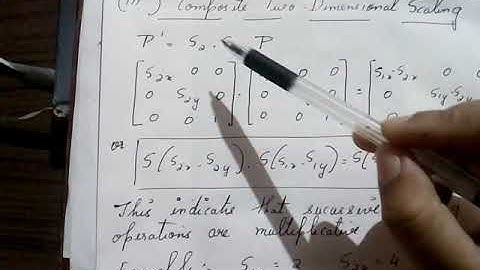 (iii) Composite Two-Dimensional Scaling
P' = S2 . S P
[S2x 0 0] [ 0 0] [S1x.S2x 0
[0 S2y 0] . [ 0] = [0 S1y.S2y
[0 0 1] [0 0 1] [0 0
or S(S2x . S2y) . S(S1x . S1y) = S(S
This indicates that sucessive
operations are multiplicative
S = 2 S2x = 4